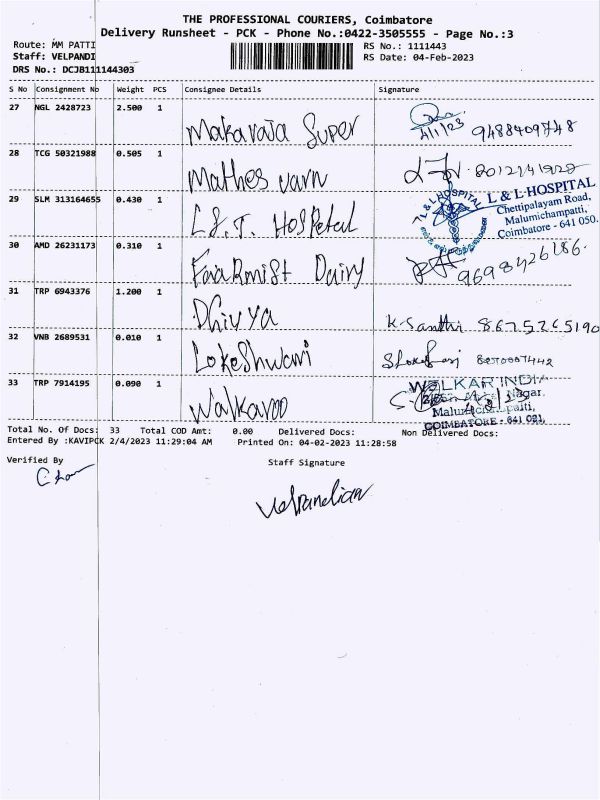 THE PROFESSIONAL COURIERS, Coimbatore
Delivery Runsheet - PCK - Phone No.:0422-3505555 - Page No.:3
Route: MM PATTI
RS No.: 1111443
Staff: VELPANDI
RS Date: 04-Feb-2023
DRS No.: DCJB111144303
S No Consignment No Weight PCS Consignee Details Signature
27 NGL 2428723 2.500 1
Makaraja Super
4/1/23 9488409748
28 TCG 50321988 0.505 1
Mathes varn
29 SLM 313164655 0.430 1
L&T. Hospetal
L & L HOSPITAL
L & L HOSPITAL
Chettipalayam Road,
Malumichampatti,
Coimbatore - 641 050.
30 AMD 26231173 0.310 1
Farmist Dairy
9698426186.
31 TRP 6943376 1.200 1
Dhivya
K. Santhi 8675265190
32 VNB 2689531 0.010 1
Lokeshwari
33 TRP 7914195 0.090 1
Walkaroo
WALKAR INDIA
Nagar,
COIMBATORE - 641 021.
Total No. Of Docs: 33 Total COD Amt: 0.00 Delivered Docs: Non Delivered Docs:
Entered By :KAVIPCK 2/4/2023 11:29:04 AM Printed On: 04-02-2023 11:28:58
Verified By
Staff Signature